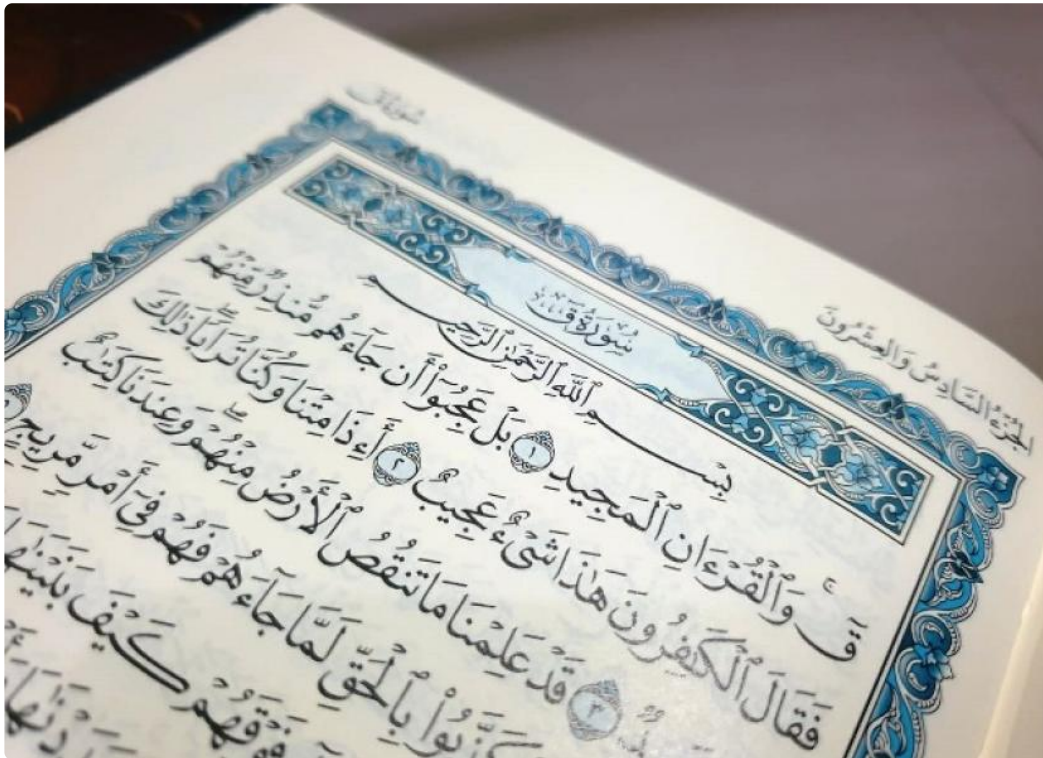 سُورَةُ قٓ
الجُزْءُ السَّادِسُ وَالعِشْرُونَ
سُورَةُ قٓ
بِسْمِ ٱللَّهِ ٱلرَّحْمَٰنِ ٱلرَّحِيمِ
قٓ ۚ وَٱلْقُرْءَانِ ٱلْمَجِيدِ ١ بَلْ عَجِبُوٓا۟ أَن جَآءَهُم مُّنذِرٌ مِّنْهُمْ
فَقَالَ ٱلْكَٰفِرُونَ هَٰذَا شَىْءٌ عَجِيبٌ ٢ أَءِذَا مِتْنَا وَكُنَّا تُرَابًا ۖ ذَٰلِكَ
٣ قَدْ عَلِمْنَا مَا تَنقُصُ ٱلْأَرْضُ مِنْهُمْ ۖ وَعِندَنَا كِتَٰبٌ
كَذَّبُوا۟ بِٱلْحَقِّ لَمَّا جَآءَهُمْ فَهُمْ فِىٓ أَمْرٍ مَّرِيجٍ
فَوْقَهُمْ كَيْفَ بَنَيْنَٰهَا